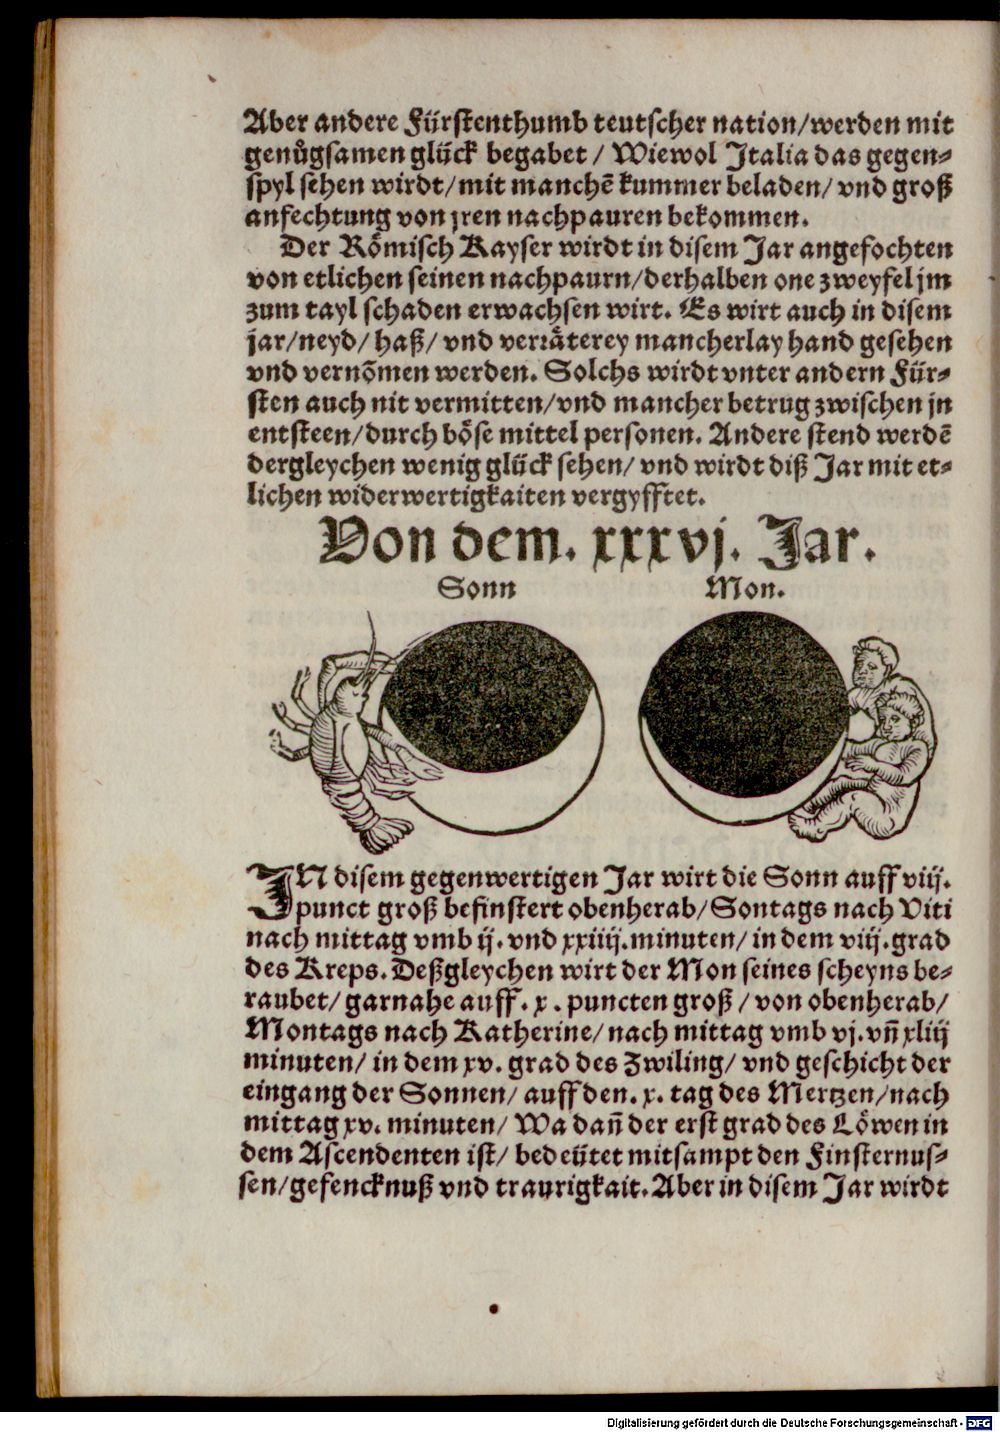 Aber andere Fürstenthumb teutscher nation/werden mit
genůgsamen glück begabet / Wiewol Italia das gegen-
spyl sehen wirdt/mit manchē kummer beladen/ vnd groß
anfechtung von jren nachpauren bekommen.
Der Römisch Kayser wirdt in disem Jar angefochten
von etlichen seinen nachpaurn/derhalben one zweyfel jm
zum tayl schaden erwachsen wirt. Es wirt auch in disem
jar/neyd/ haß/ vnd verräterey mancherlay hand gesehen
vnd vernōmen werden. Solchs wirdt vnter andern Für-
sten auch nit vermitten/vnd mancher betrug zwischen jn
entsteen/durch böse mittel personen. Andere stend werdē
dergleychen wenig glück sehen/ vnd wirdt diß Jar mit et-
lichen widerwertigkaiten vergyfftet.
Von dem. xxxvj. Jar.
Sonn Mon.
IN disem gegenwertigen Jar wirt die Sonn auff viij.
punct groß befinstert obenherab/Sontags nach Viti
nach mittag vmb ij. vnd xxiiij.minuten/ in dem viij.grad
des Kreps. Deßgleychen wirt der Mon seines scheyns be-
raubet/ garnahe auff. x. puncten groß / von obenherab/
Montags nach Katherine/nach mittag vmb vj.vn̄ xliij
minuten/ in dem xv. grad des Zwiling/ vnd geschicht der
eingang der Sonnen/ auff den. x. tag des Mertzen/nach
mittag xv. minuten/ Wa dan̄ der erst grad des Löwen in
dem Ascendenten ist/ bedeütet mitsampt den Finsternus-
sen/gefencknuß vnd traurigkait. Aber in disem Jar wirdt
Digitalisierung gefördert durch die Deutsche Forschungsgemeinschaft - DFG